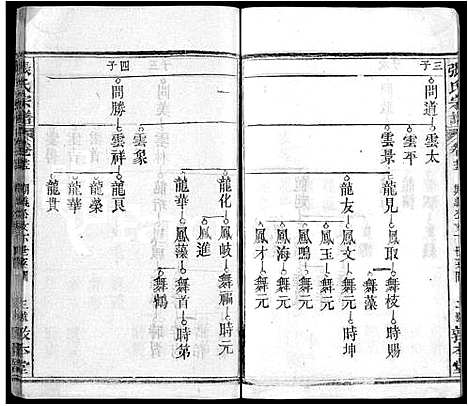 張氏宗譜
三子
問道
雲太
雲平
雲景
龍兄
鳳取
舞枝
時賜
舞藻
龍友
鳳文
舞元
時坤
鳳玉
舞元
鳳鳴
舞元
鳳海
舞元
鳳才
舞元
龍化
鳳岐
舞福
時元
鳳進
龍華
鳳藻
舞首
時第
舞鶴
四子
問勝
雲象
雲祥
龍良
龍榮
龍貴
張氏宗譜